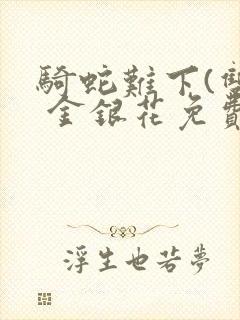 騎蛇難下(雙
金銀花免費
浮生也若夢